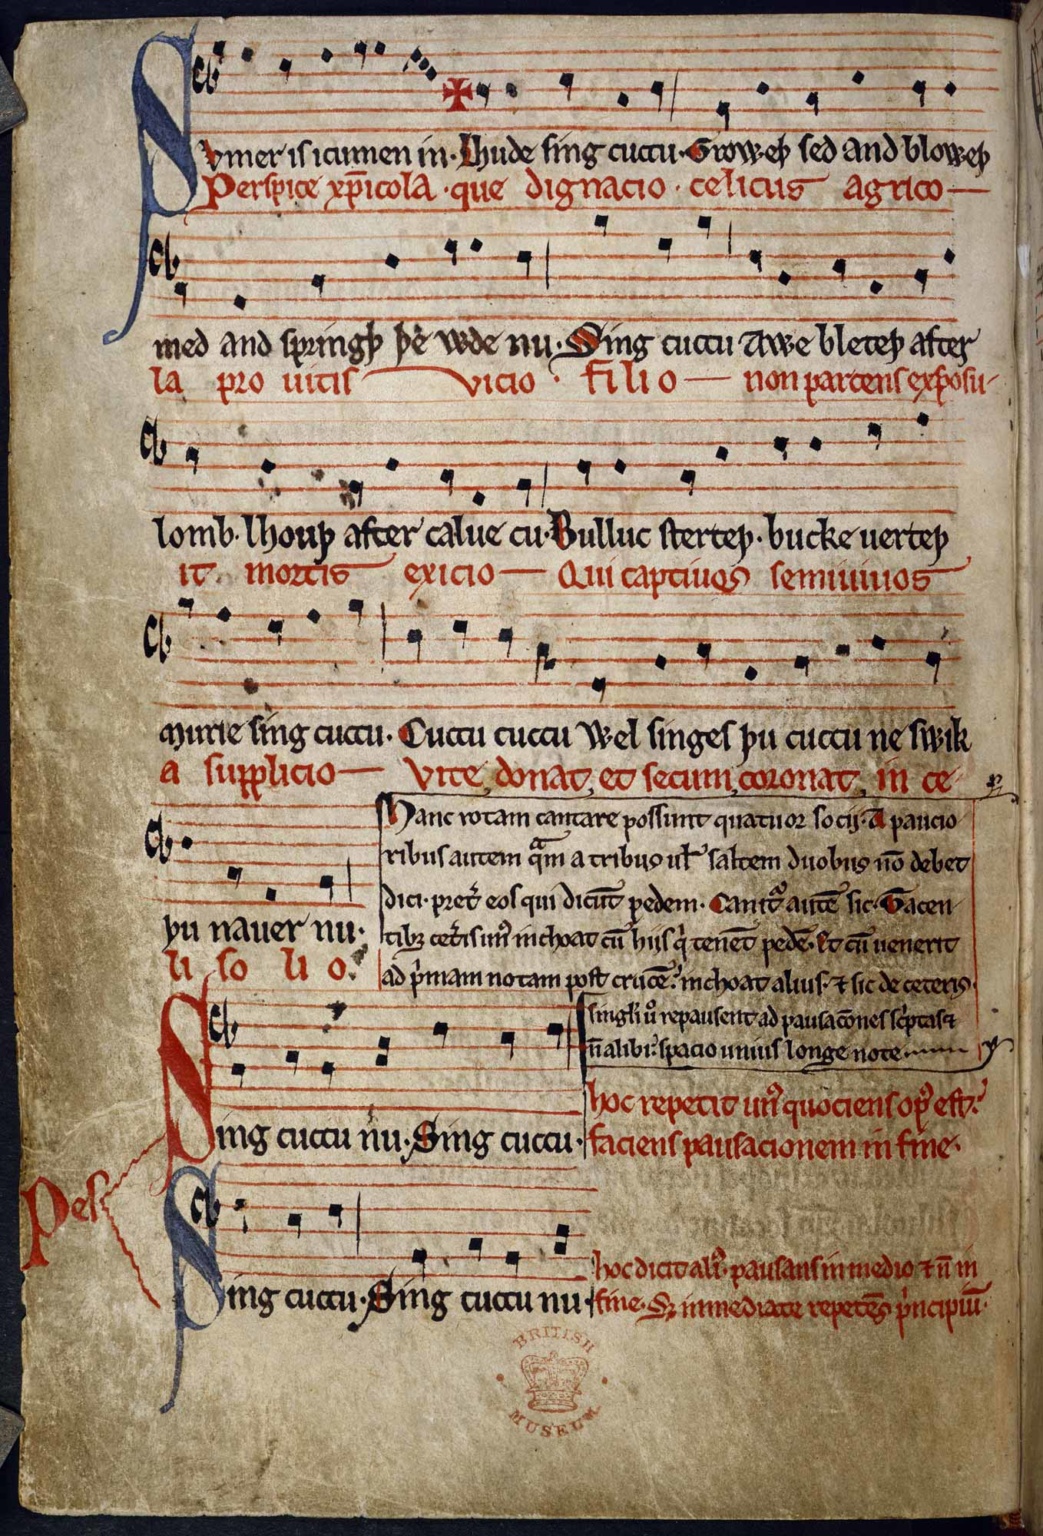 Svmer is icumen in· Lhude sing cuccu· Groweþ sed and bloweþ
Perspice xp̄icola· que dignacio· celicus agrico
med and springþ þe wde nu· Sing cuccu Awe bleteþ after
la pro uitis vicio· filio non parcens exposu
lomb· lhouþ after calue cu· Bulluc sterteþ· bucke uerteþ
it mortis exicio Qui captiuos semiuiuos
murie sing cuccu· Cuccu cuccu Wel singes þu cuccu ne swik
a supplicio Vite donat, et secum coronat, in ce
þu nauer nu·
li so li o·
Hanc rotam cantare possunt quatuor socij· A paucio
ribus autem q̄m a tribus ul' saltem duobus n̄o debet
dici· pret̉ eos qui dicūt pedem· Canit᷒ autē sic· Tacen
tibȝ cet̉is un᷒ inchoat cū hijs q̇ tenēt pedē· Et cū uenerit
ad p̉mam notam post crucē: inchoat alius· ⁊ sic de ceteris·
singli u̓o repausent ad pausac̄ones sc̉ptas ⁊
n̄ alibi: spacio unius longe note
Sing cuccu nu· Sing cuccu·
hoc repetit un᷒ quociens op᷒ est:
faciens pausacionem in fine·
Pes
Sing cuccu· Sing cuccu nu·
hoc dicit ali᷒· pausans in medio ⁊ n̄ in
fine· Sȝ inmediate repetēs p̉ncipiū·
BRITISH
MUSEUM